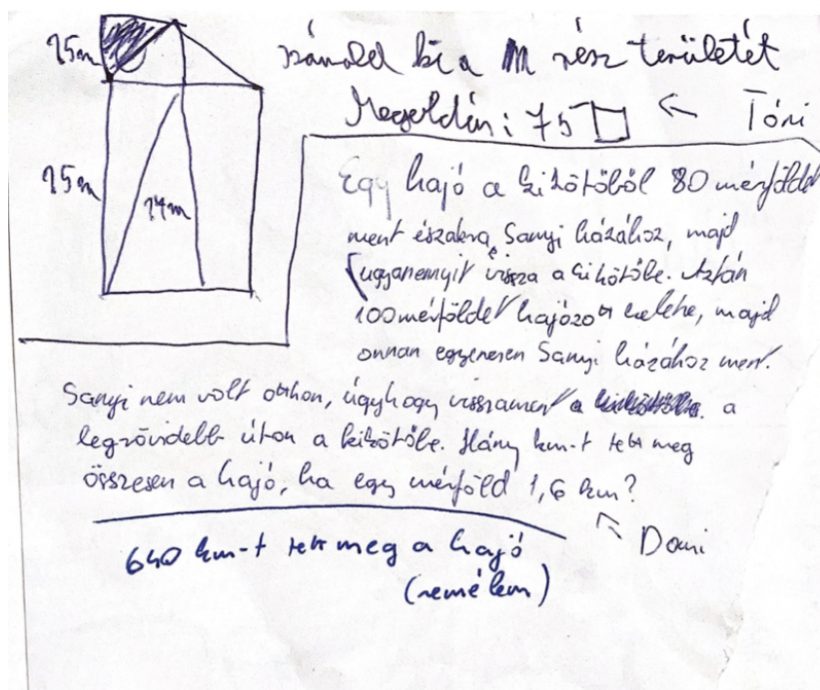 15m
számold ki a rész területét
Megoldás: 75 ← Tóni
15m
14m
Egy hajó a kikötőből 80 mérföldet
ment északra, Sanyi házához, majd
ugyanennyit vissza a kikötőbe. Aztán
100 mérföldet hajózott keletre, majd
onnan egyenesen Sanyi házához ment.
Sanyi nem volt otthon, úgyhogy visszament a
legrövidebb úton a kikötőbe. Hány km-t tett meg
összesen a hajó, ha egy mérföld 1,6 km?
Dani
640 km-t tett meg a hajó
(remélem)